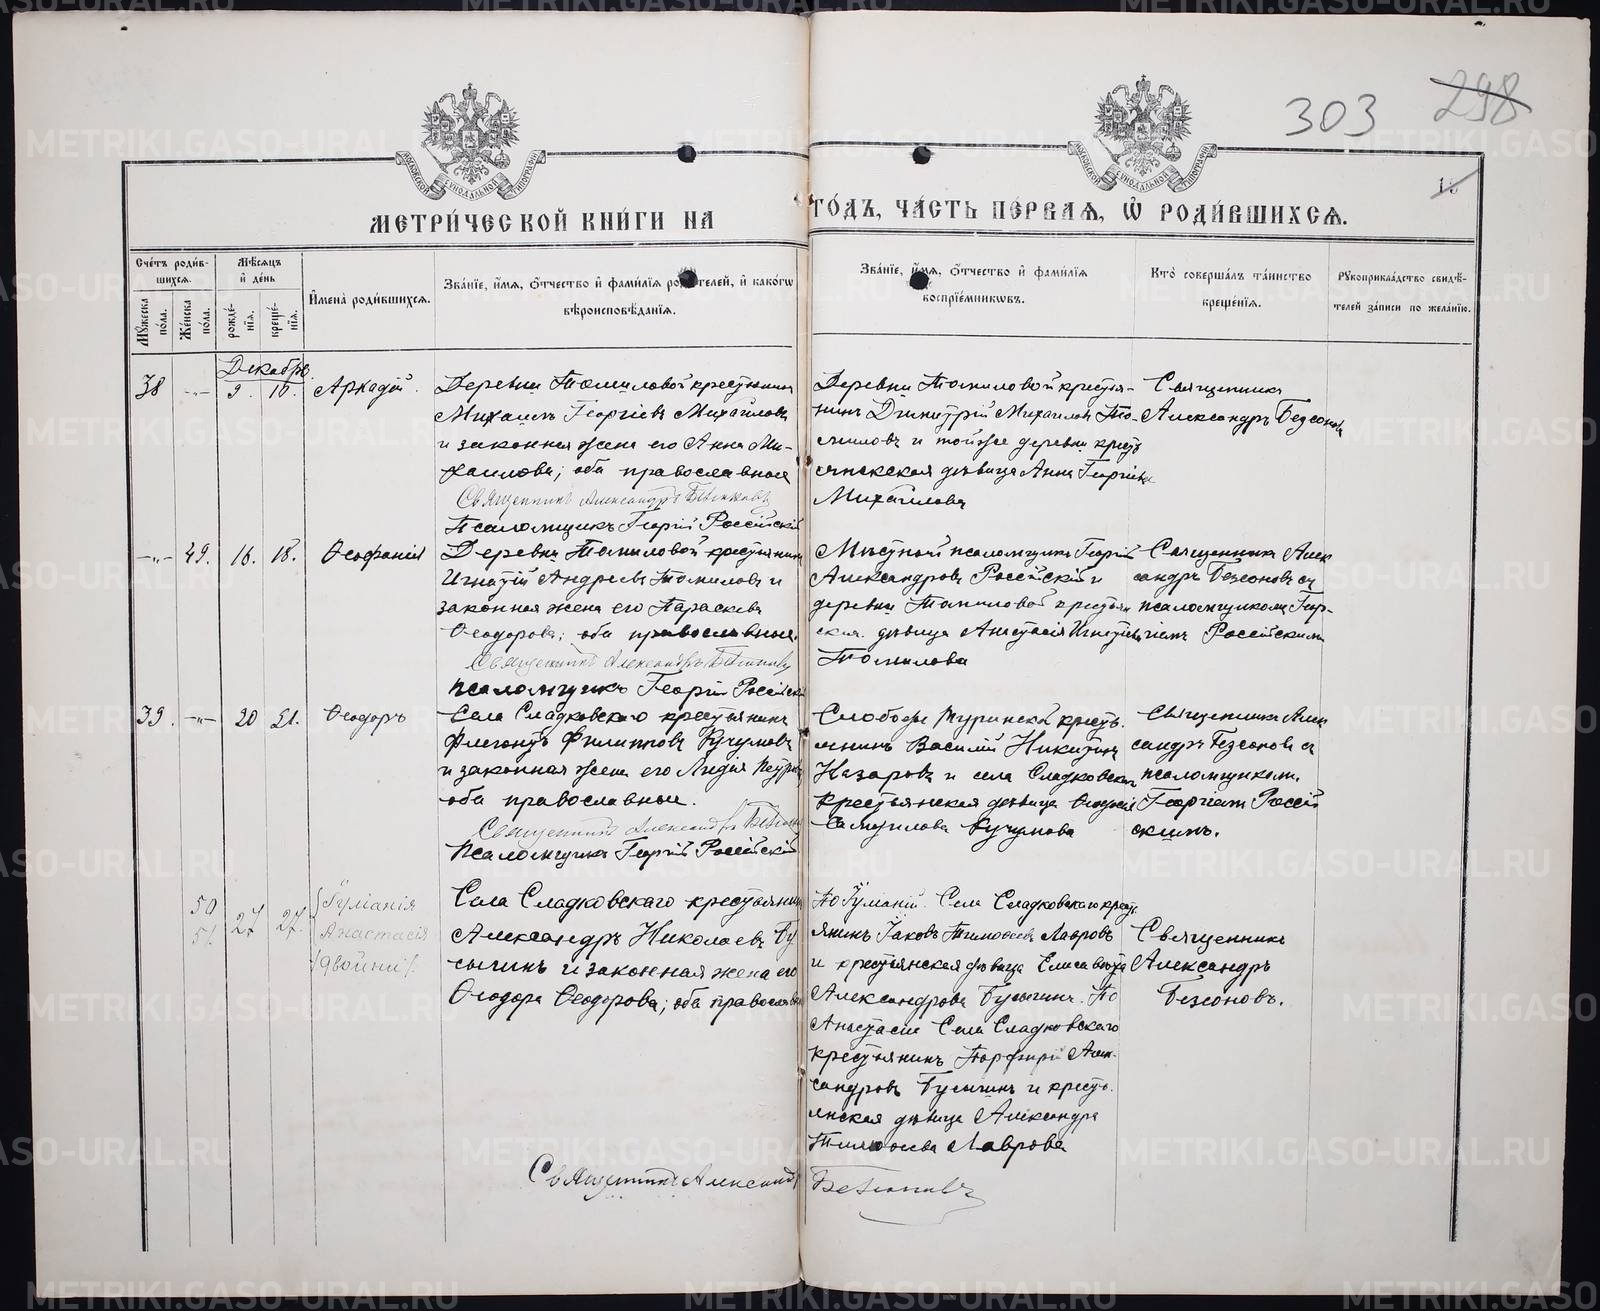 303 298
15
МЕТРИ́ЧЕСКОЙ КНИ́ГИ НА ГО́ДЪ, ЧА́СТЬ ПЕ́РВАЯ, Ѽ РОДИ́ВШИХСѦ.
Сче́тъ роди́в-
шихсѧ.
Мꙋ́жеска
по́ла.
Же́нска
по́ла.
Мѣ́сѧцъ
и҆ де́нь
рожде́-
нїѧ.
креще́-
нїѧ.
И҆мена̀ роди́вшихсѧ.
Зва́нїе, и҆́мѧ, ѻ҆́тчество и҆ фами́лїѧ роди́телей, и҆ како́гѡ
вѣроисповѣ́данїѧ.
Зва́нїе, и҆́мѧ, ѻ҆́тчество и҆ фами́лїѧ
воспрїе́мникѡвъ.
Кто̀ соверша́лъ та́инство
креще́нїѧ.
Рꙋкоприкла́дство свидѣ́-
телей за́писи по жела́нїю.
Декабрь.
38 -„- 9. 10. Аркадій.
Деревни Томиловой крестьянинъ
Михаилъ Георгіевъ Михайловъ
и законная жена его Анна Ми-
хаилова; оба православные
Священникъ Александръ Безсоновъ
Псаломщикъ Георгій Россійскій
Деревни Томиловой кресть-
нинъ Димитрій Михаиловъ То-
миловъ и той же деревни кресть
янская дѣвица Анна Георгіева
Михайлова
Священникъ
Александръ Безсоновъ
-„- 49. 16. 18. Ѳеофанія
Деревни Томиловой крестьянинъ
Игнатій Андреевъ Томиловъ и
законная жена его Параскева
Ѳеодорова; оба православные.
Священникъ Александръ Безсоновъ
псаломщикъ Георгій Россійскій
Мѣстный псаломщикъ Георгій
Александровъ Россійскій и
деревни Томиловой крестьян
ская дѣвица Анастасія Игнатіева
Томилова
Священникъ Алек
сандръ Безсоновъ съ
псаломщикомъ Геор-
гіемъ Россійскимъ
39. -„- 20 21. Ѳеодоръ
Села Сладковскаго крестьянинъ
Флегонтъ Филипповъ Кучумовъ
и законная жена его Лидія Петрова
оба православные.
Священникъ Александръ Безсоновъ
Псаломщикъ Георгій Россійскій
Слободы Туринской кресть.
янинъ Василій Никитинъ
Назаровъ и села Сладковскаго
крестьянская дѣвица Ѳеодосія
Самуилова Кучумова
Священникъ Алек
сандръ Безсоновъ съ
псаломщикомъ
Георгіемъ Россій
скимъ.
50
51 27 27. Іуліанія
Анастасія
/двойни/.
Села Сладковскаго крестьянинъ
Александръ Николаевъ Бу
сыгинъ и законная жена его
Ѳеодора Ѳеодорова; оба православные
По Іуліаніи Села Сладковскаго кресть
янинъ Іаковъ Тимоѳеевъ Лавровъ
и крестьянская дѣвица Елисавета
Александрова Бусыгина. По
Анастасіи Села Сладковскаго
крестьянинъ Порфирій Алек-
сандровъ Бусыгинъ и кресть.
янская дѣвица Александра
Тимоѳеева Лаврова
Священникъ
Александръ
Безсоновъ.
Священникъ Александръ Безсоновъ